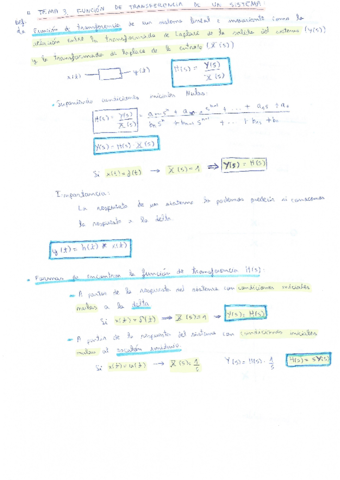 TEMA 3: FUNCIÓN DE TRANSFERENCIA DE UN SISTEMA
Def: Función de transferencia de un sistema lineal e invariante como la
relación entre la transformada de Laplace de la salida del sistema (Y(s))
y la transformada de Laplace de la entrada (X(s))
x(t) → y(t) H(s) = Y(s)/X(s)
condiciones iniciales nulas:
H(s) = Y(s)/X(s) =
Y(s) = H(s) X(s)
Si x(t) = δ(t) → X(s) = 1 ⇒ Y(s) = H(s)
Importancia:
La respuesta de un sistema la podemos predecir si conocemos
la respuesta a la delta
y(t) = h(t) * x(t)
Formas de encontrar la función de transferencia H(s):
A partir de la respuesta del sistema con condiciones iniciales
nulas a la delta
Si x(t) = δ(t) → X(s) = 1 → Y(s) = H(s)
A partir de la respuesta del sistema con condiciones iniciales
nulas al escalón unitario
Si x(t) = u(t) → X(s) = 1/s Y(s) = H(s) · 1/s H(s) = sY(s)